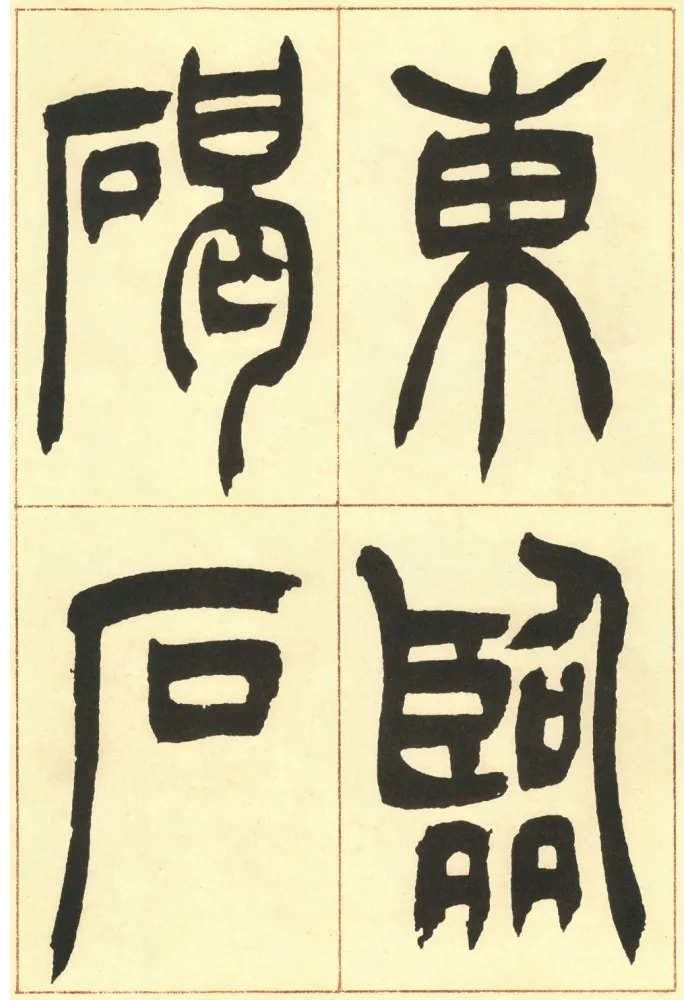 東臨
碣石